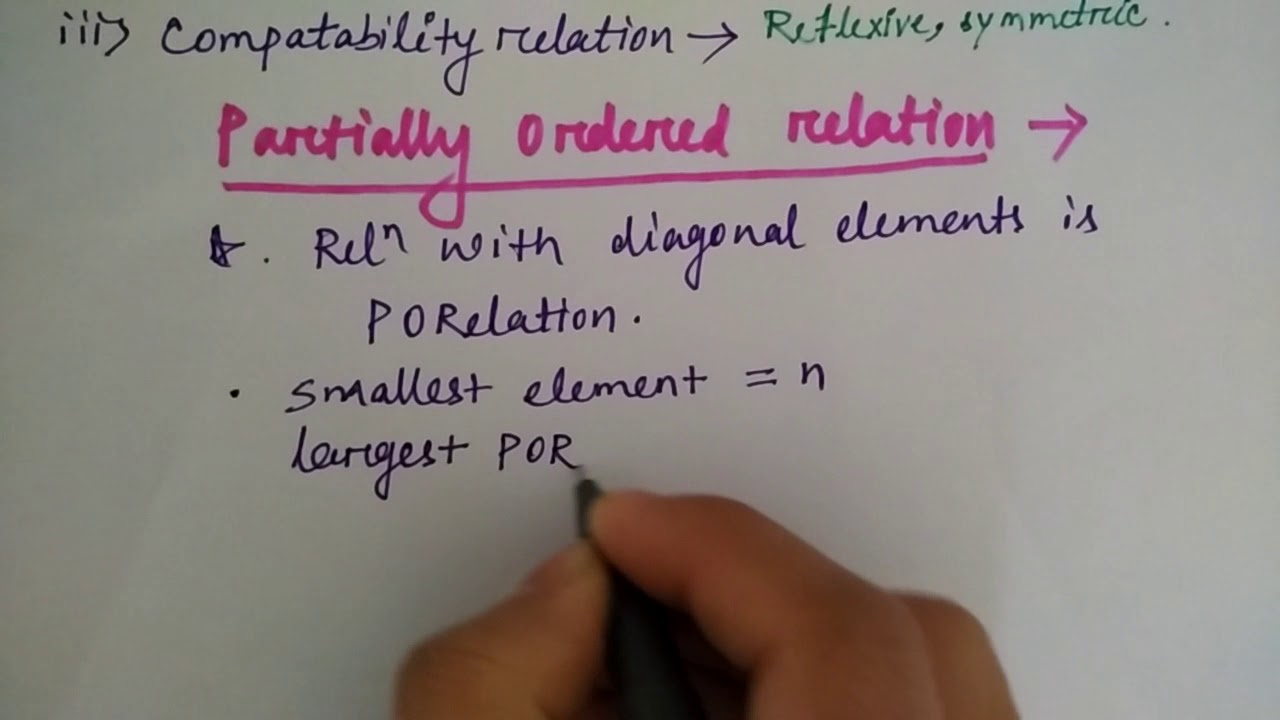 iii) Compatability relation → Reflexive, symmetric.
Partially ordered relation →
☆. Relⁿ with diagonal elements is
PORelation.
· smallest element = n
largest POR